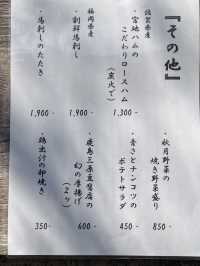 『その他』
佐賀県産
・宮地ハムの
こだわりロースハム
(炭火で)
1,300-
福岡県産
・新鮮馬刺し
1,900-
・馬刺しのたたき
1,900-
・秋月野菜の
焼き野菜盛り
850-
・青さとナンコツの
ポテトサラダ
450-
・鹿島三原豆腐店の
幻の厚揚げ
600-
・鶏出汁の卵焼き
350-